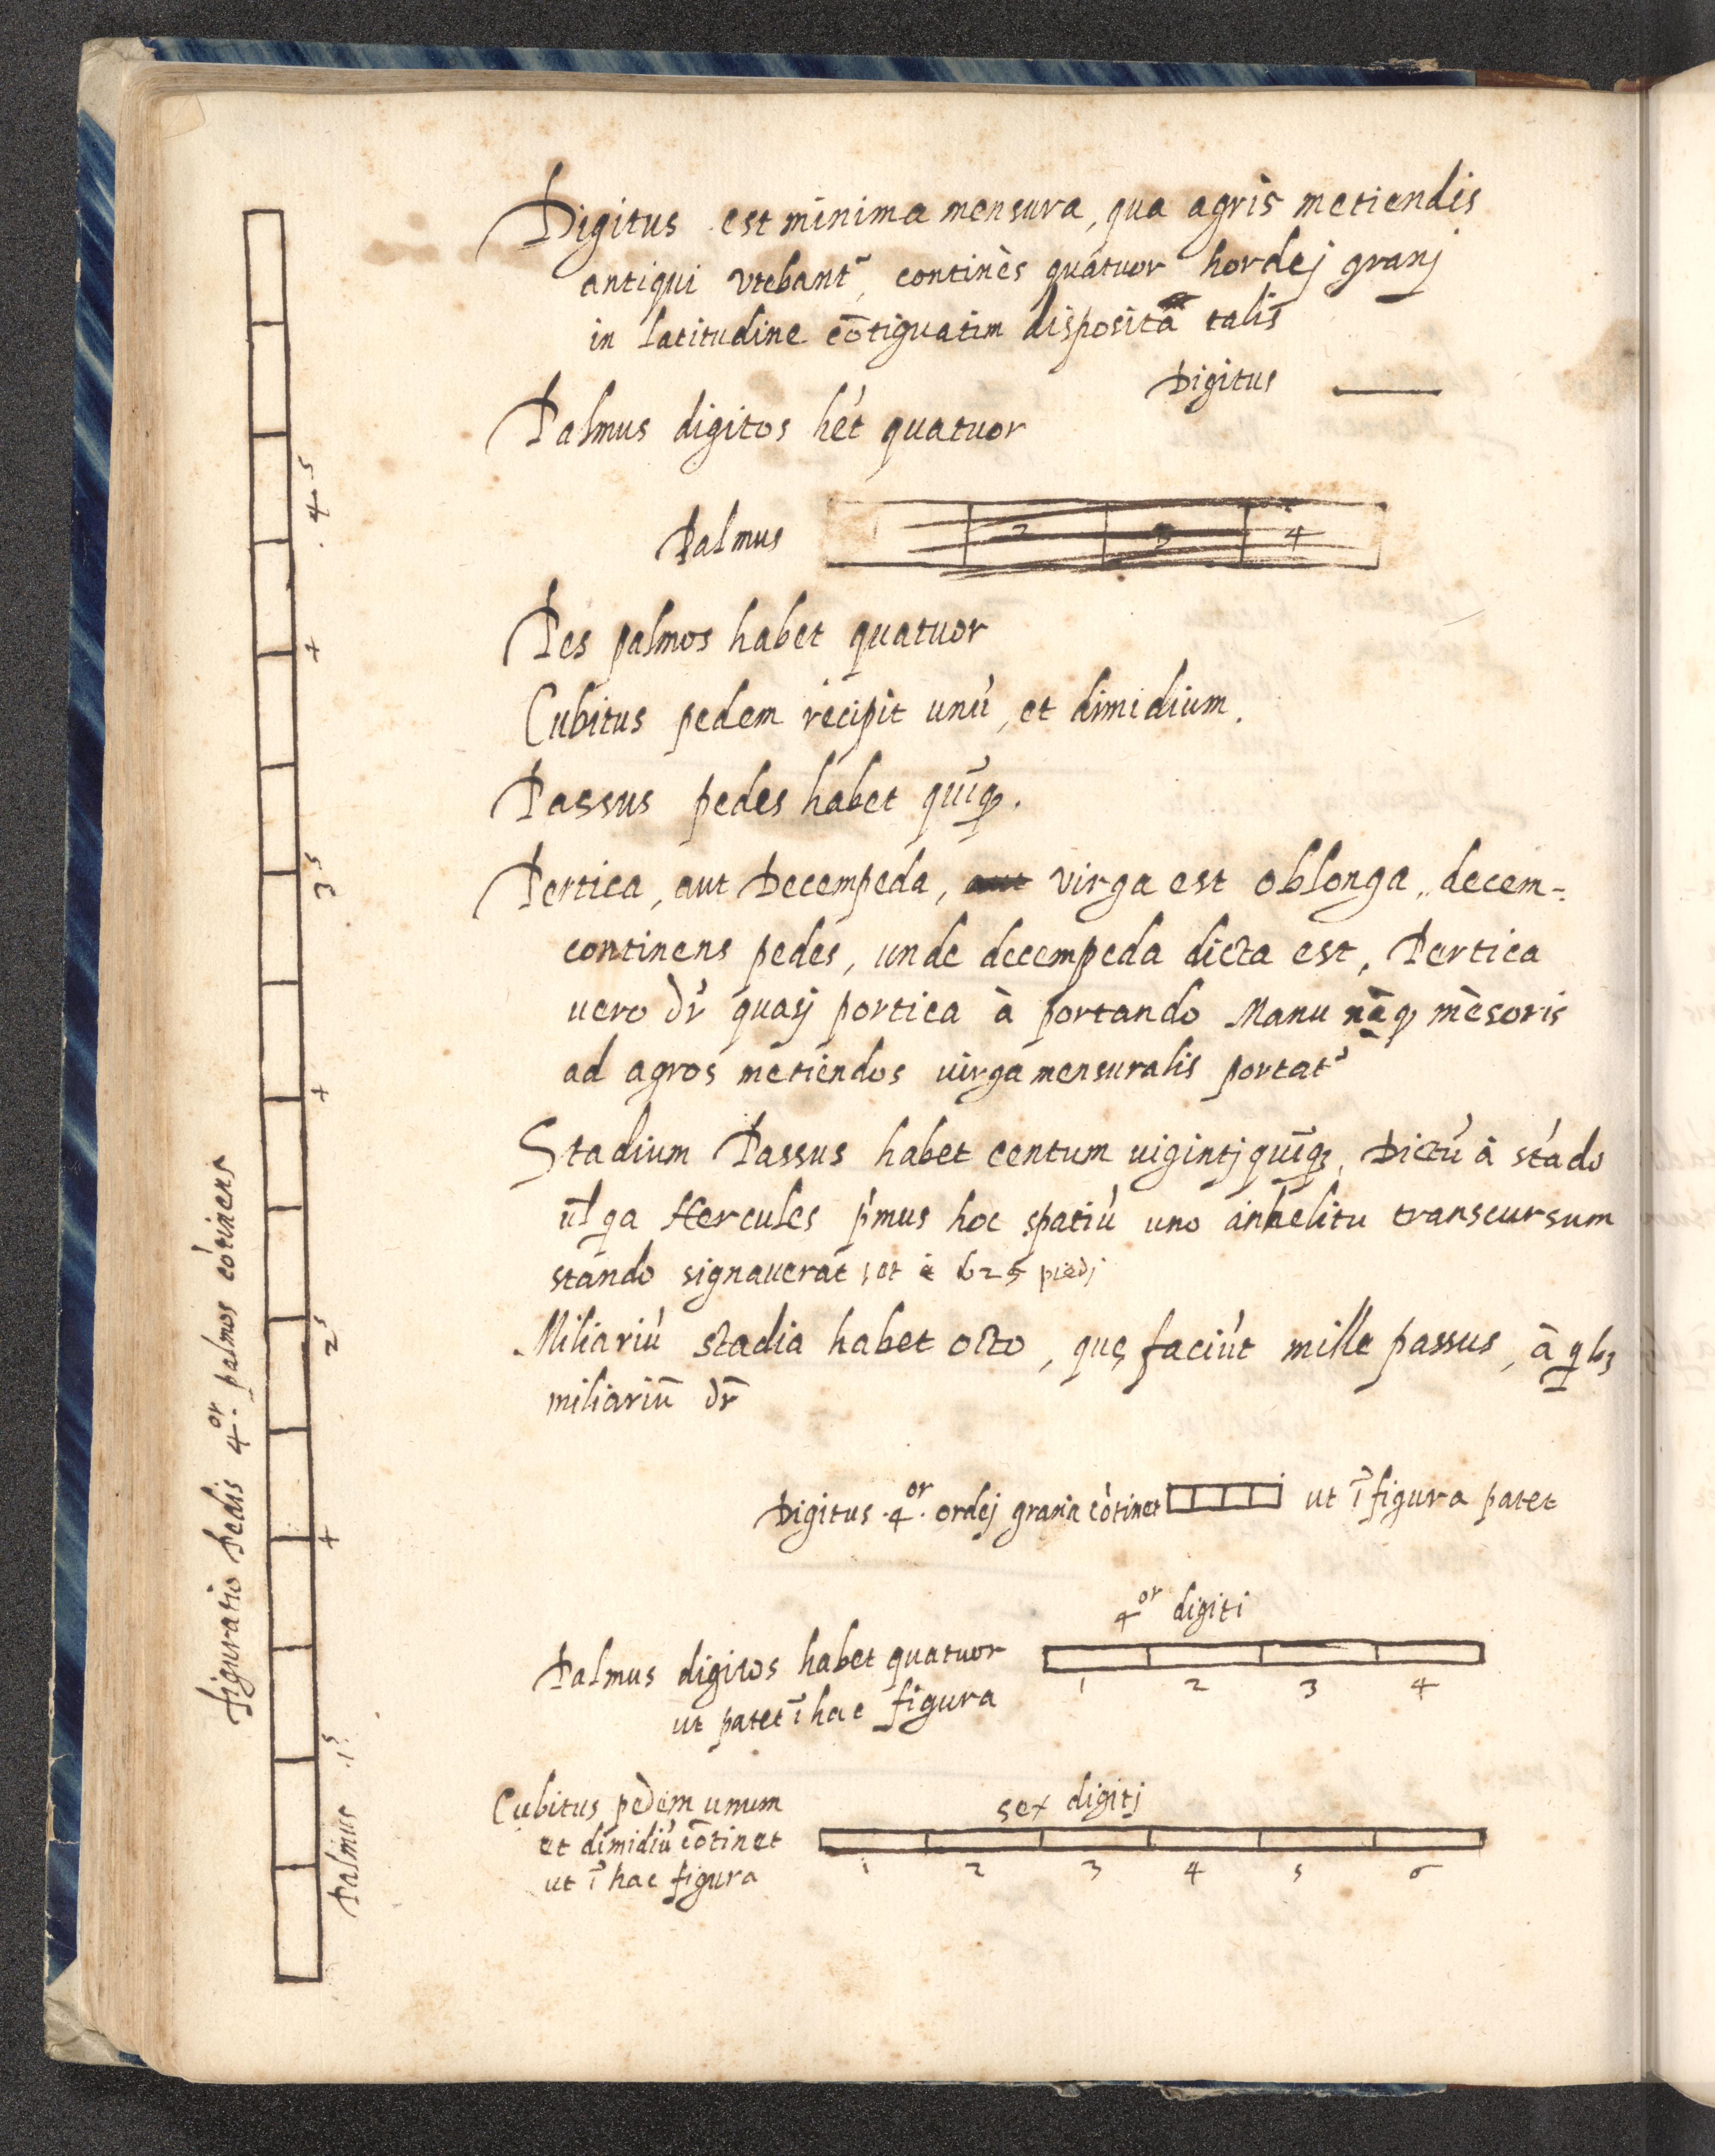 Digitus est minima mensura, qua agris metiendis
antiqui vtebant˜, continẽs quatuor hordej granj
in latitudine cōtiguatim disposita talis
Digitus
Palmus digitos hét quatuor
Palmus
2 3 4
Pes palmos habet quatuor
Cubitus pedem recipit unũ, et dimidium.
Passus pedes habet quīq.
Pertica, aut Decempeda, aut virga est oblonga, decem-
continens pedes, unde decempeda dicta est, Pertica
uero dr̃ quasj portica à portando Manu nāq mēsoris
ad agros metiendos uirga mensuralis portat˜
Stadium Passus habet centum uigintj quīq, Dictū à stādo
ul qa Hercules p̃mus hoc spatiū uno anhelitu transcursum
stando signauerat, et è 625 piedj
Miliariũ stadia habet octo, quę faciũt mille passus, à qbȝ
miliariū dr̄
Digitus .4or. ordej grana cōtinet ut ī figura patet
4or digiti
Palmus digitos habet quatuor
ut patet ī hac figura
1 2 3 4
Cubitus pedem unum
et dimidiū cōtinet
ut ī hac figura
sex digitj
1 2 3 4 5 6
figuratio Pedis 4or. palmos cōtinens
Palmus .1s
+
2s
+
3s
+
.4.s